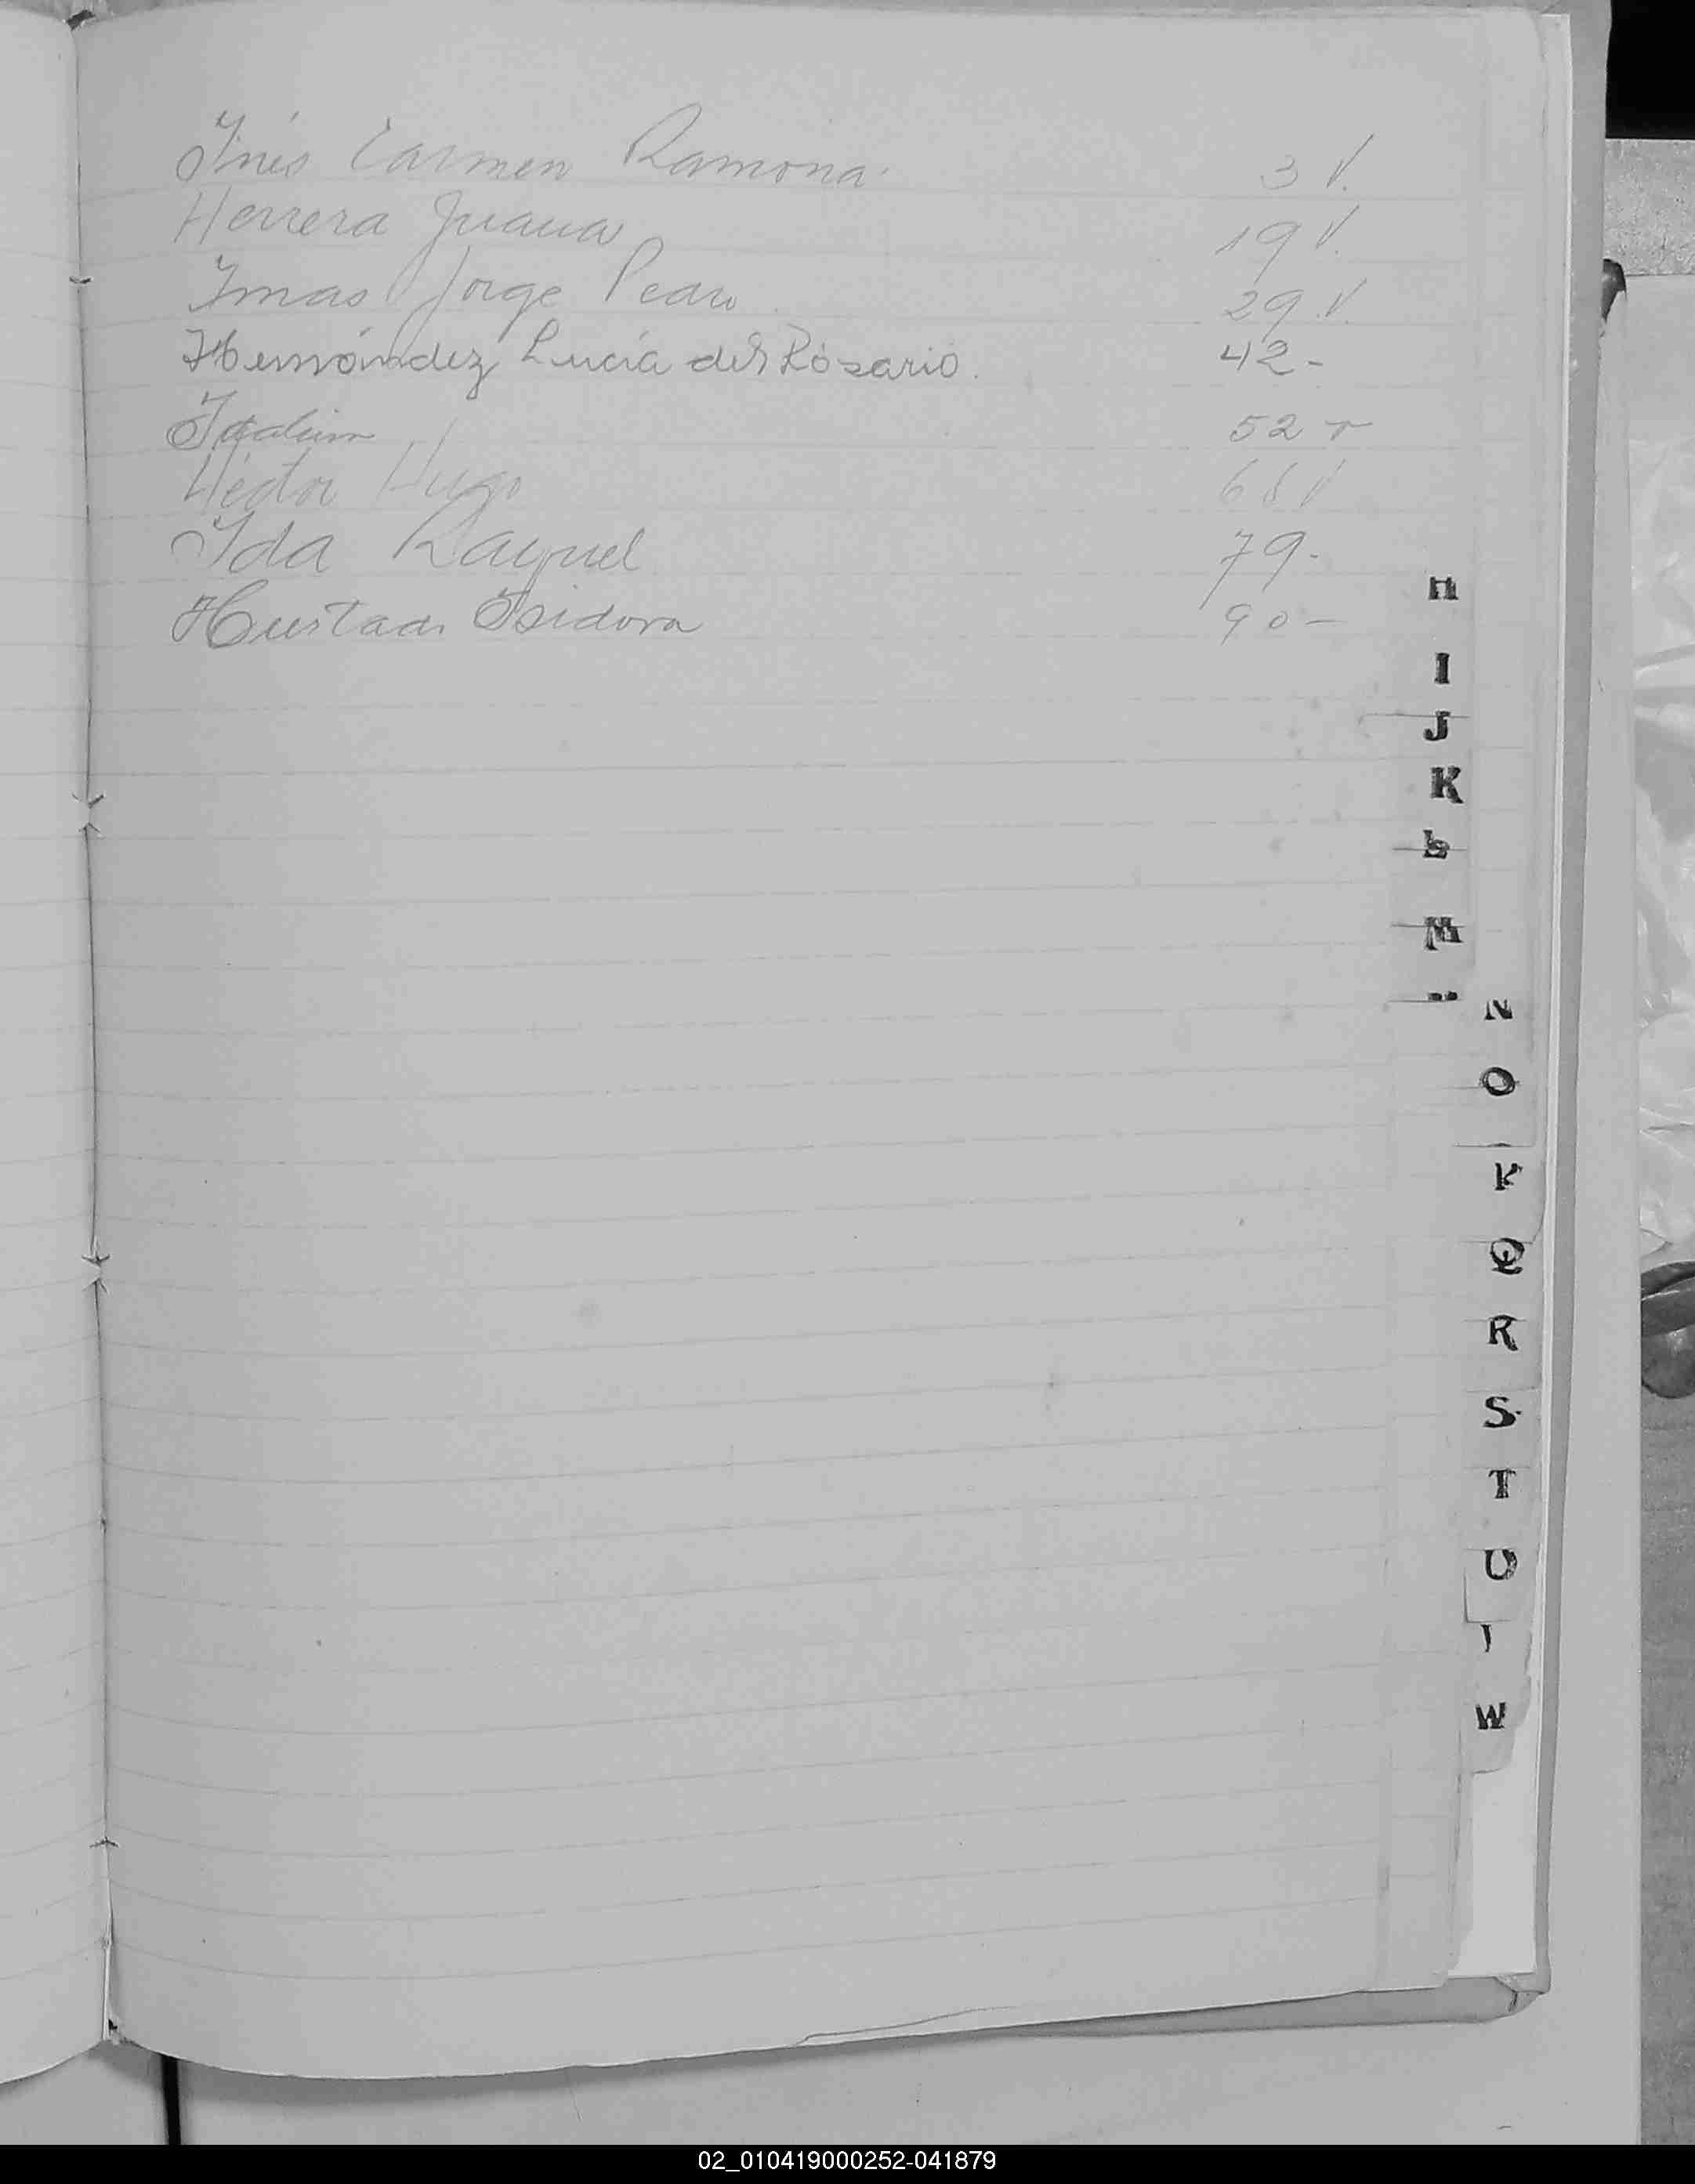 Inés Carmen Ramona. 3 V.
Herrera Juana 19 V.
Imas Jorge Pedro 29 V.
Hernández Lucía del Rosario. 42-
52
Héctor Hugo 68 V
Ida Raquel 79-
Isidora 90-
H
I
J
K
L
M
N
O
P
Q
R
S
T
U
W
02_010419000252-041879